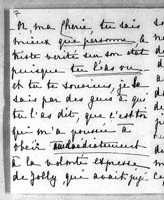 7
ma Chérie, tu sais
mieux que personne la
triste vérité sur son état
puisque tu l'as vu
et tu te soucies, je le
sais par des gens à qui
tu l'as dit, que c'est toi
qui m'a poussée à
obéir
à la volonté expresse
de Jolly qui avait jugé